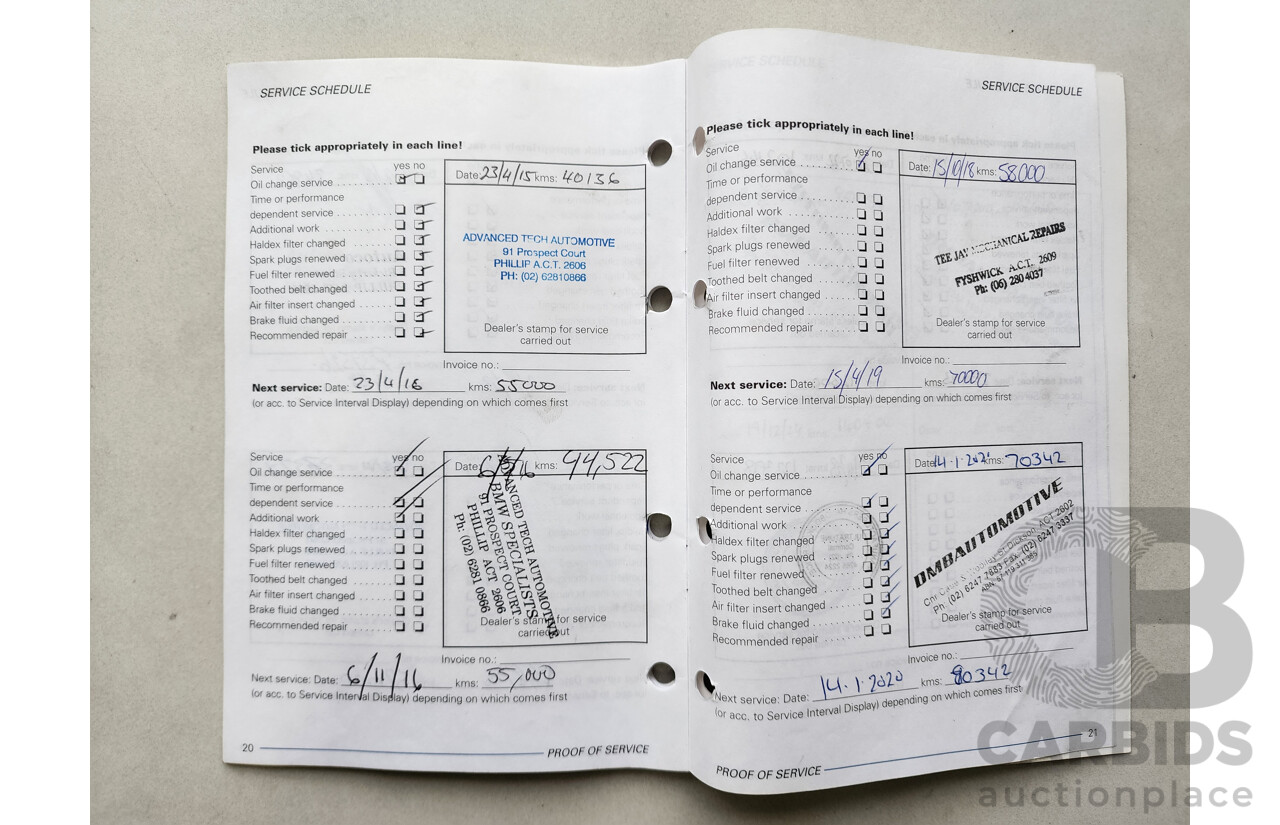 SERVICE SCHEDULE
Please tick appropriately in each line!
Service yes no
Oil change service
Time or performance
dependent service
Additional work
Haldex filter changed
Spark plugs renewed
Fuel filter renewed
Toothed belt changed
Air filter insert changed
Brake fluid changed
Recommended repair
Date: 23/4/15 kms: 40136
ADVANCED TECH AUTOMOTIVE
91 Prospect Court
PHILLIP A.C.T. 2606
PH: (02) 62810866
Dealer's stamp for service
carried out
Invoice no.:
Next service: Date: 23/4/16 kms: 55000
(or acc. to Service Interval Display) depending on which comes first
Service yes no
Oil change service
Time or performance
dependent service
Additional work
Haldex filter changed
Spark plugs renewed
Fuel filter renewed
Toothed belt changed
Air filter insert changed
Brake fluid changed
Recommended repair
Date: 6/5/16 kms: 44,522
ADVANCED TECH AUTOMOTIVE
BMW SPECIALISTS
91 PROSPECT COURT
PHILLIP ACT 2606
Ph: (02) 6281 0866
Dealer's stamp for service
carried out
Invoice no.:
Next service: Date: 6/11/16 kms: 55,000
(or acc. to Service Interval Display) depending on which comes first
20
PROOF OF SERVICE
SERVICE SCHEDULE
Please tick appropriately in each line!
Service yes no
Oil change service
Time or performance
dependent service
Additional work
Haldex filter changed
Spark plugs renewed
Fuel filter renewed
Toothed belt changed
Air filter insert changed
Brake fluid changed
Recommended repair
Date: 15/10/18 kms: 58000
TEE JAY MECHANICAL REPAIRS
FYSHWICK A.C.T. 2609
Ph: (06) 280 4037
Dealer's stamp for service
carried out
Invoice no.:
Next service: Date: 15/4/19 kms: 70000
(or acc. to Service Interval Display) depending on which comes first
Service yes no
Oil change service
Time or performance
dependent service
Additional work
Haldex filter changed
Spark plugs renewed
Fuel filter renewed
Toothed belt changed
Air filter insert changed
Brake fluid changed
Recommended repair
Date: 14.1.202 kms: 70342
DMBAUTOMOTIVE
Dickson ACT 2602
Ph: (02) 6247 7883 Fax: (02) 6247 3837
Dealer's stamp for service
carried out
Invoice no.:
Next service: Date: 14.1.2020 kms: 80342
(or acc. to Service Interval Display) depending on which comes first
21
PROOF OF SERVICE
CARBIDS
auctionplace